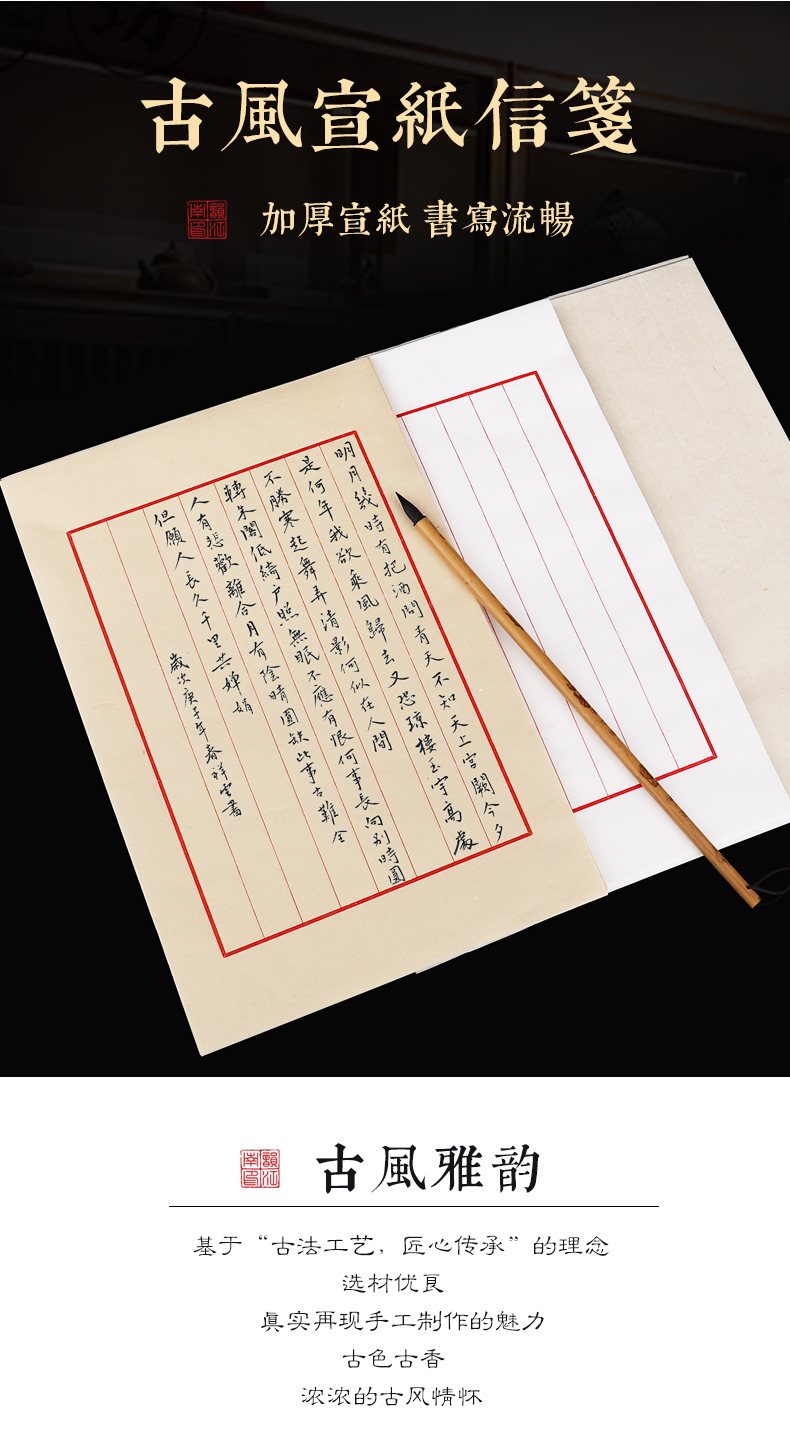 功
古風宣紙信箋
韻江南印
加厚宣紙 書寫流暢
明月幾時有把酒問青天不知天上宮闕今夕
是何年我欲乘風歸去又恐瓊樓玉宇高處
不勝寒起舞弄清影何似在人間
轉朱閣低綺户照無眠不應有恨何事長向别時圓
人有悲歡離合月有陰晴圓缺此事古難全
但願人長久千里共嬋娟
歲次庚子年春祥書
韻江南印
古風雅韵
基于“古法工艺，匠心传承”的理念
选材优良
眞实再现手工制作的魅力
古色古香
浓浓的古风情怀